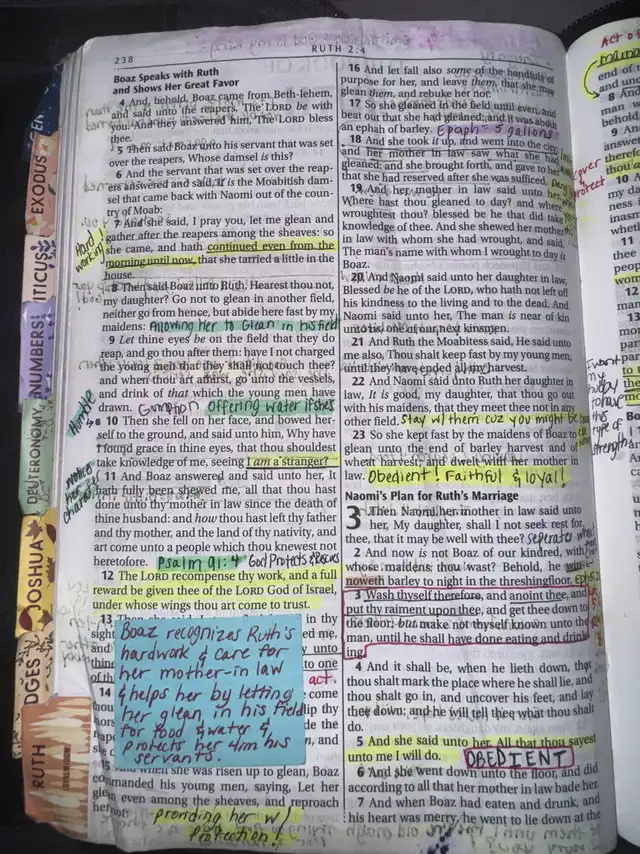 238
RUTH 2:4
EXODUS
ITICUS
NUMBERS
DEUTERONOMY
JOSHUA
DGES
RUTH
Boaz Speaks with Ruth
and Shows Her Great Favor
4 And, behold, Boaz came from Beth-lehem,
and said unto the reapers, The LORD be with
you. And they answered him, The LORD bless
thee.
5 Then said Boaz unto his servant that was set
over the reapers, Whose damsel is this?
6 And the servant that was set over the reap-
ers answered and said, It is the Moabitish dam-
sel that came back with Naomi out of the coun-
try of Moab:
7 And she said, I pray you, let me glean and
gather after the reapers among the sheaves: so
she came, and hath continued even from the
morning until now, that she tarried a little in the
house.
Hard
working
8 Then said Boaz unto Ruth, Hearest thou not,
my daughter? Go not to glean in another field,
neither go from hence, but abide here fast by my
maidens: Allowing her to Glean in his field
9 Let thine eyes be on the field that they do
reap, and go thou after them: have I not charged
the young men that they shall not touch thee?
and when thou art athirst, go unto the vessels,
and drink of that which the young men have
drawn. Gumption offering water if she's
Humble
10 Then she fell on her face, and bowed her-
self to the ground, and said unto him, Why have
I found grace in thine eyes, that thou shouldest
take knowledge of me, seeing I am a stranger?
11 And Boaz answered and said unto her, It
hath fully been shewed me, all that thou hast
done unto thy mother in law since the death of
thine husband: and how thou hast left thy father
and thy mother, and the land of thy nativity, and
art come unto a people which thou knewest not
heretofore. Psalm 91:4 God Protects &
12 The LORD recompense thy work, and a full
reward be given thee of the LORD God of Israel,
under whose wings thou art come to trust.
13
sight
act.
Boaz recognizes Ruth's
hardwork & care for
her mother-in law
& helps her by letting
her glean in his field
for food & water &
protects her from his
servants.
15 And when she was risen up to glean, Boaz
commanded his young men, saying, Let her
glean even among the sheaves, and reproach
her not:
providing her w/
Protection!
16 And let fall also some of the handfuls of
purpose for her, and leave them, that she may
glean them, and rebuke her not.
17 So she gleaned in the field until even, and
beat out that she had gleaned: and it was about
an ephah of barley. Epaph = 5 gallons
18 And she took it up, and went into the city:
and her mother in law saw what she had
gleaned: and she brought forth, and gave to her
that she had reserved after she was sufficed.
19 And her mother in law said unto her,
Where hast thou gleaned to day? and where
wroughtest thou? blessed be he that did take
knowledge of thee. And she shewed her mother
in law with whom she had wrought, and said,
The man's name with whom I wrought to day is
Boaz.
20 And Naomi said unto her daughter in law,
Blessed be he of the LORD, who hath not left off
his kindness to the living and to the dead. And
Naomi said unto her, The man is near of kin
unto us, one of our next kinsmen.
21 And Ruth the Moabitess said, He said unto
me also, Thou shalt keep fast by my young men,
until they have ended all my harvest.
22 And Naomi said unto Ruth her daughter in
law, It is good, my daughter, that thou go out
with his maidens, that they meet thee not in any
other field. stay w/ them cuz you might be
23 So she kept fast by the maidens of Boaz to
glean unto the end of barley harvest and of
wheat harvest; and dwelt with her mother in
law. Obedient! Faithful & loyal!
Naomi's Plan for Ruth's Marriage
3 Then Naomi her mother in law said unto
her, My daughter, shall I not seek rest for
thee, that it may be well with thee?
2 And now is not Boaz of our kindred, with
whose maidens thou wast? Behold, he win-
noweth barley to night in the threshingfloor.
3 Wash thyself therefore, and anoint thee, and
put thy raiment upon thee, and get thee down to
the floor: but make not thyself known unto the
man, until he shall have done eating and drink-
ing.
4 And it shall be, when he lieth down, that
thou shalt mark the place where he shall lie, and
thou shalt go in, and uncover his feet, and lay
thee down; and he will tell thee what thou shalt
do.
5 And she said unto her, All that thou sayest
unto me I will do. OBEDIENT
6 And she went down unto the floor, and did
according to all that her mother in law bade her.
7 And when Boaz had eaten and drunk, and
his heart was merry, he went to lie down at the